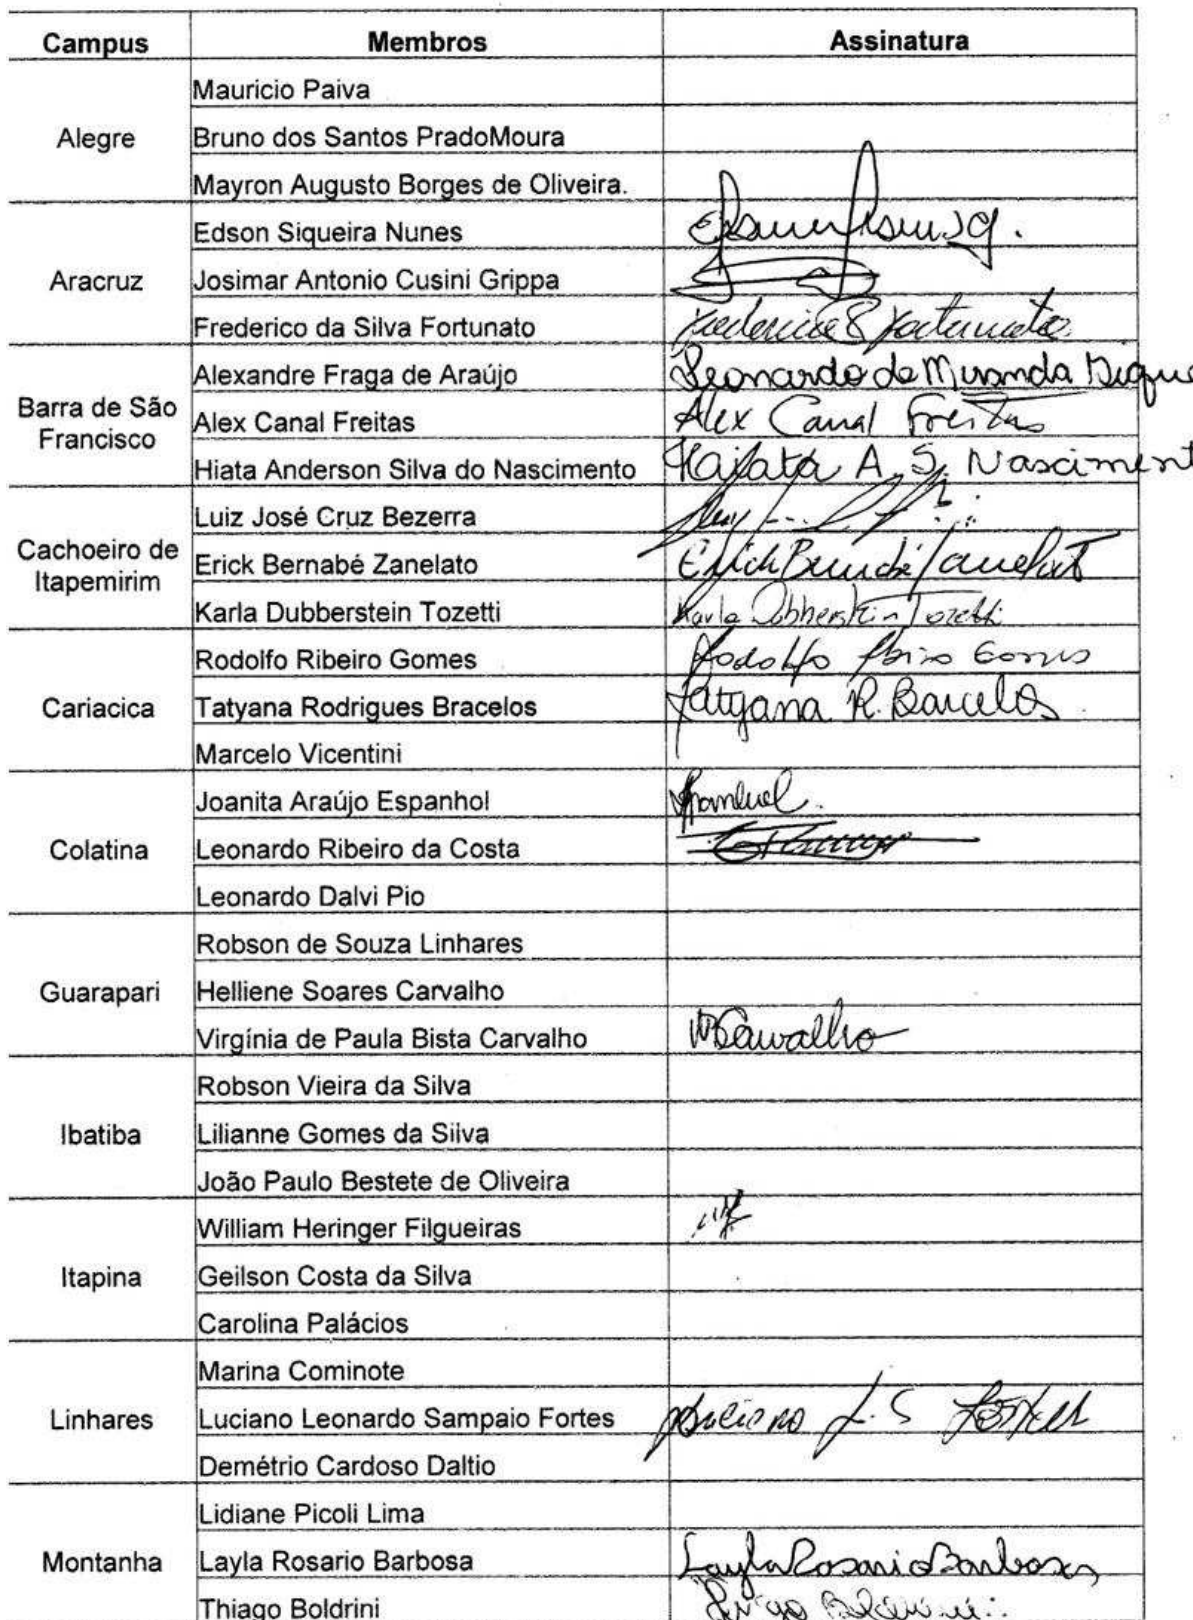 Campus Membros Assinatura
Alegre
Mauricio Paiva
Bruno dos Santos PradoMoura
Mayron Augusto Borges de Oliveira.
Aracruz
Edson Siqueira Nunes
Josimar Antonio Cusini Grippa
Frederico da Silva Fortunato Frederico S Fortunato
Barra de São
Francisco
Alexandre Fraga de Araújo Leonardo de Miranda
Alex Canal Freitas Alex Canal Freitas
Hiata Anderson Silva do Nascimento A. S. Nasciment
Cachoeiro de
Itapemirim
Luiz José Cruz Bezerra
Erick Bernabé Zanelato Erick Bernabé Zanelato
Karla Dubberstein Tozetti Karla Dubberstein Tozetti
Cariacica
Rodolfo Ribeiro Gomes Rodolfo Gomes
Tatyana Rodrigues Bracelos Tatyana R. Barcelos
Marcelo Vicentini
Colatina
Joanita Araújo Espanhol
Leonardo Ribeiro da Costa
Leonardo Dalvi Pio
Guarapari
Robson de Souza Linhares
Helliene Soares Carvalho
Virgínia de Paula Bista Carvalho Carvalho
Ibatiba
Robson Vieira da Silva
Lilianne Gomes da Silva
João Paulo Bestete de Oliveira
Itapina
William Heringer Filgueiras
Geilson Costa da Silva
Carolina Palácios
Linhares
Marina Cominote
Luciano Leonardo Sampaio Fortes Luciano L. S Fortes
Demétrio Cardoso Daltio
Montanha
Lidiane Picoli Lima
Layla Rosario Barbosa Layla Rosario Barbosa
Thiago Boldrini Thiago Boldrini